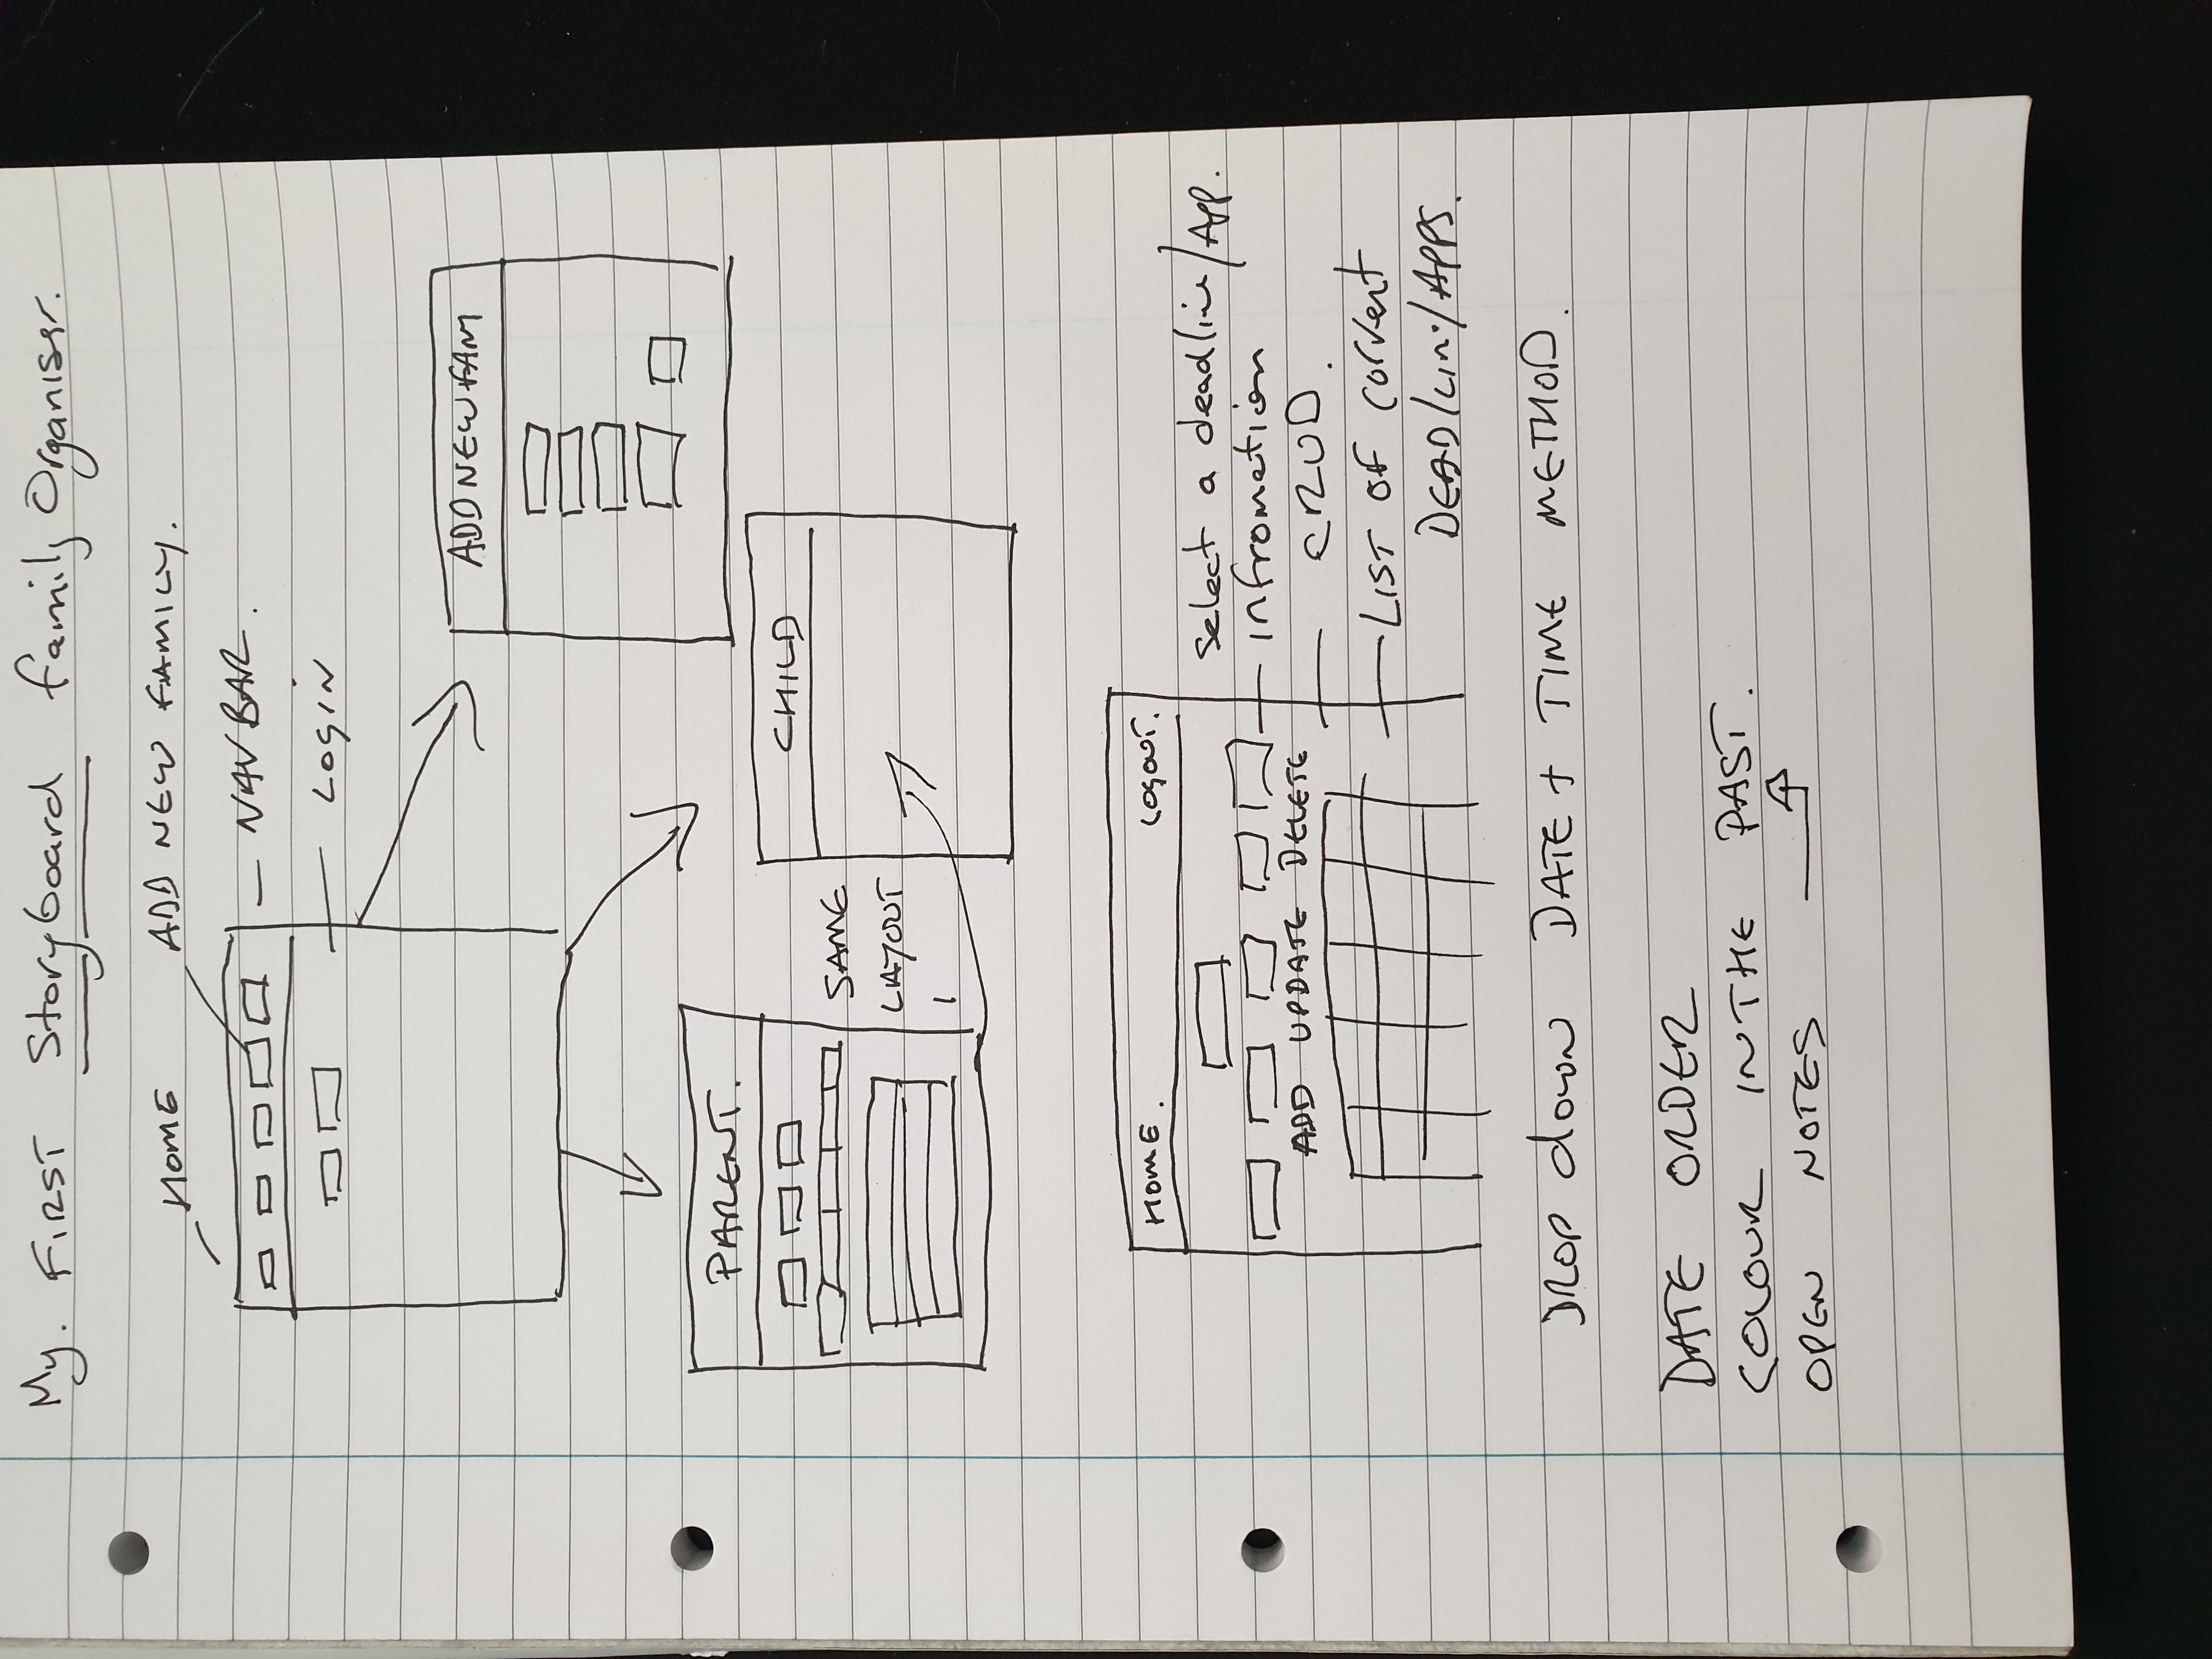 My. FIRST Storyboard Family Organiser.
HOME ADD NEW FAMILY.
NAVBAR.
LOGIN
ADD NEW FAM
PARENT.
CHILD
SAME
LAYOUT
HOME. LOGOUT.
Select a deadline/App.
infromation
ADD UPDATE DELETE
CRUD.
LIST OF corrent
DEAD/Lin/APPS.
DROP down DATE + TIME METHOD.
DATE ORDER
COLOUR IN THE PAST.
OPEN NOTES